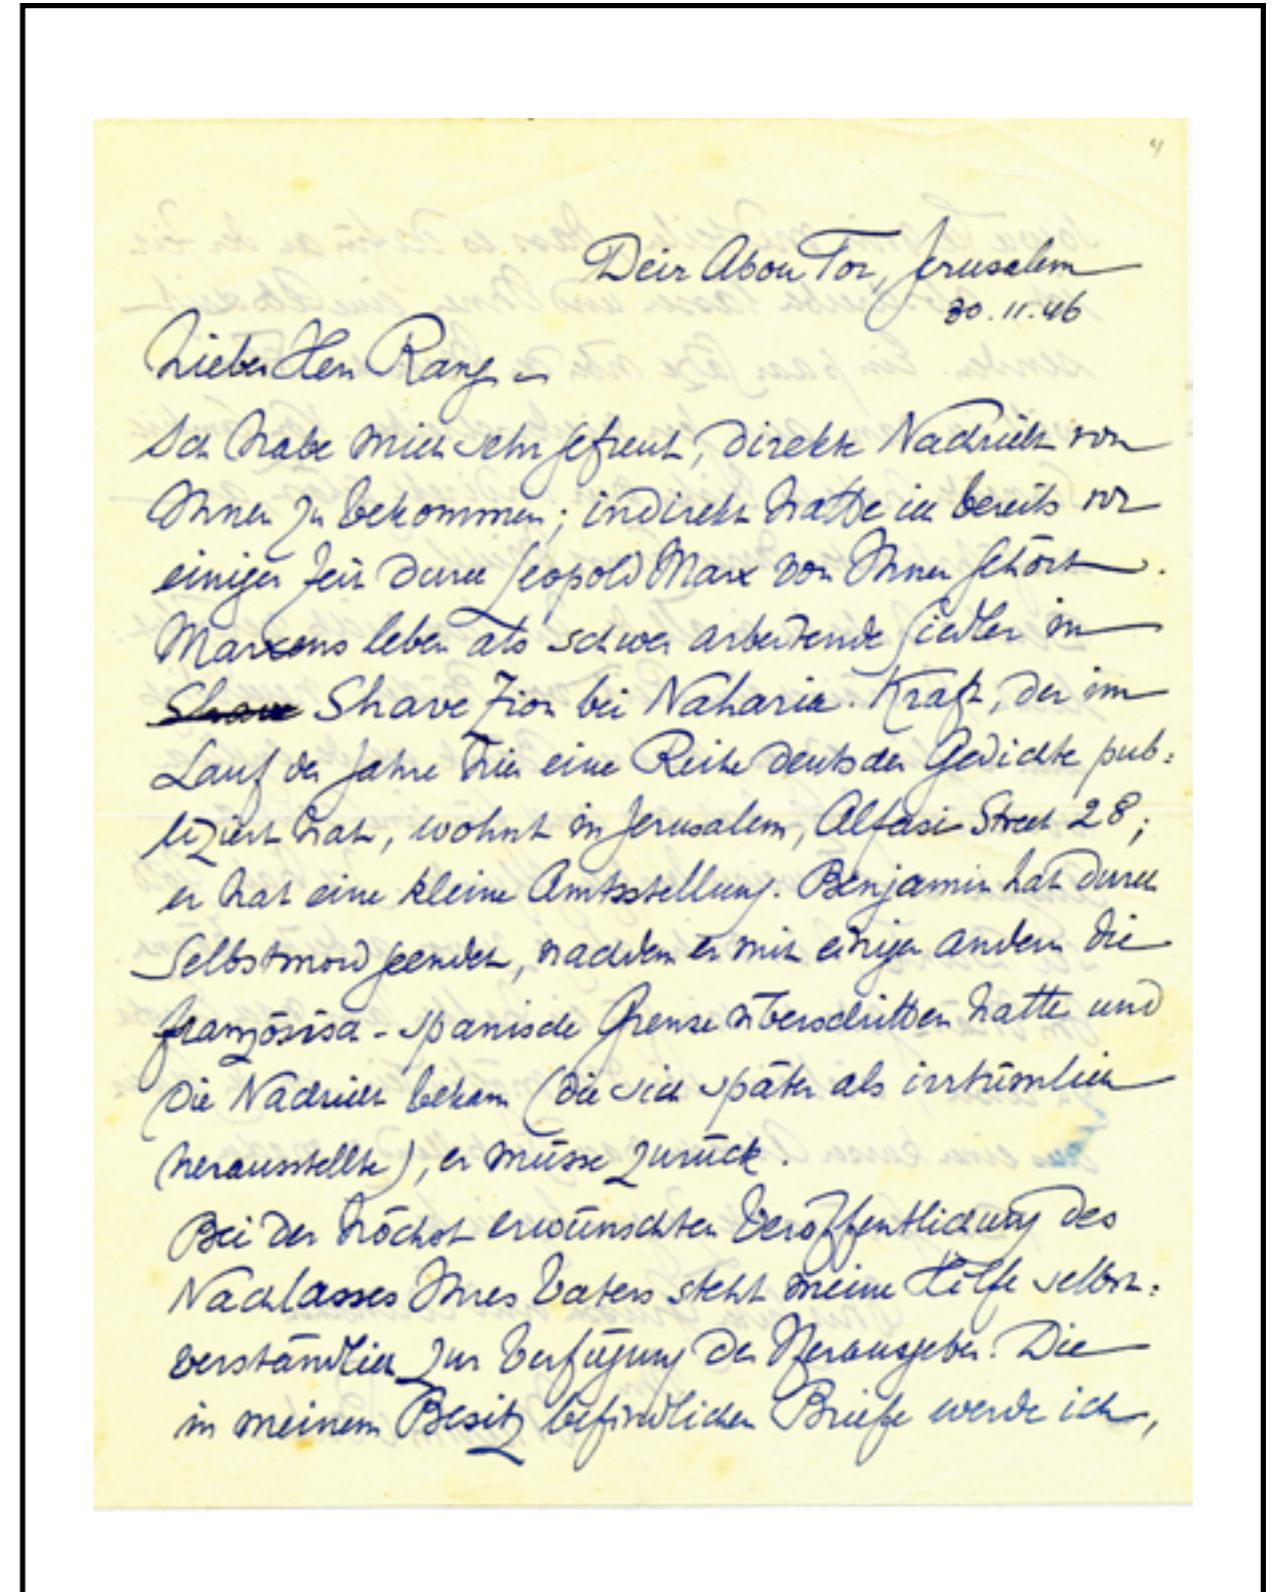 4
Deir Abou Tor, Jerusalem
30.11.46
Lieber Herr Rang –
Ich habe mich sehr gefreut, direkte Nachricht von
Ihnen zu bekommen; indirekt hatte ich bereits vor
einiger Zeit durch Leopold Marx von Ihnen gehört.
Marxens leben als schwer arbeitende Siedler in
Shave Shave Zion bei Naharia. Kraft, der im
Lauf der Jahre hier eine Reihe deutscher Gedichte pub=
liziert hat, wohnt in Jerusalem, Alfasi Street 28;
er hat eine kleine Amtsstellung. Benjamin hat durch
Selbstmord geendet, nachdem er mit einigen andern die
französisch-spanische Grenze überschritten hatte und
die Nachricht bekam (die sich später als irrtümlich
herausstellte), er müsse zurück.
Bei der höchst erwünschten Veröffentlichung des
Nachlasses Ihres Vaters steht meine Hilfe selbst=
verständlich zur Verfügung der Herausgeber. Die
in meinem Besitz befindlichen Briefe werde ich,